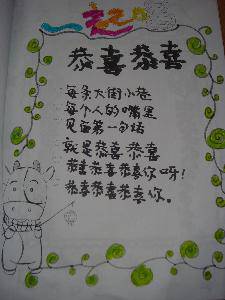 恭喜恭喜
每条大街小巷
每个人的嘴里
见面第一句话
就是恭喜恭喜
恭喜恭喜恭喜你呀!
恭喜恭喜恭喜你。